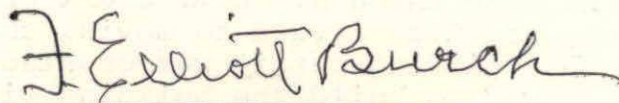 F. Elliott Burch